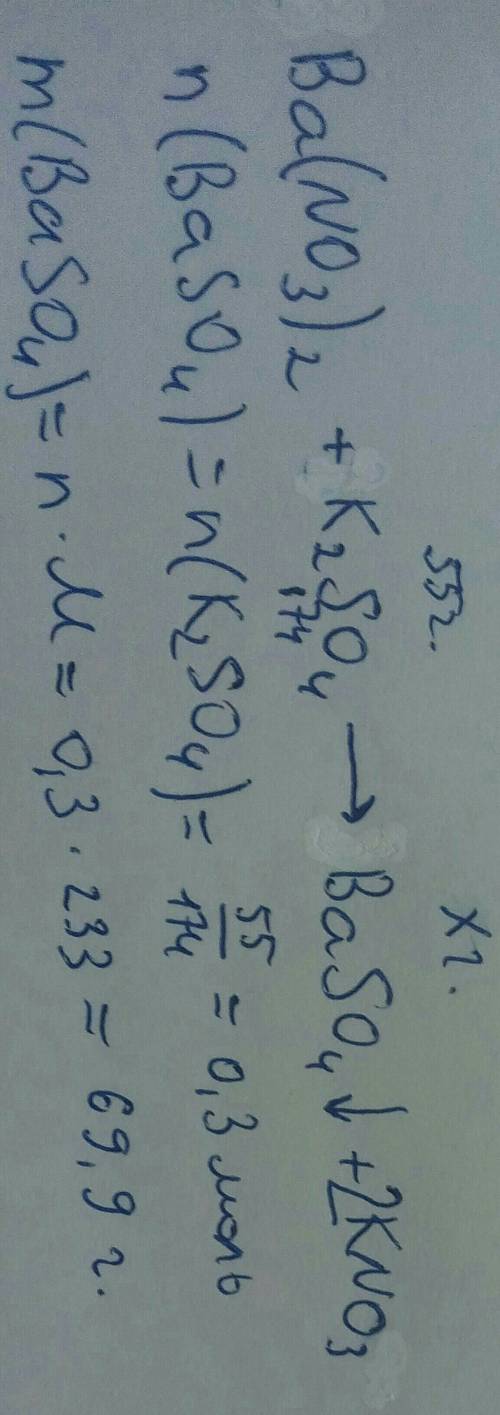 55г. xг.
Ba(NO₃)₂ + K₂SO₄ → BaSO₄↓ + 2KNO₃
174
n(BaSO₄) = n(K₂SO₄) = 55/174 = 0,3 моль
m(BaSO₄) = n · M = 0,3 · 233 = 69,9 г.